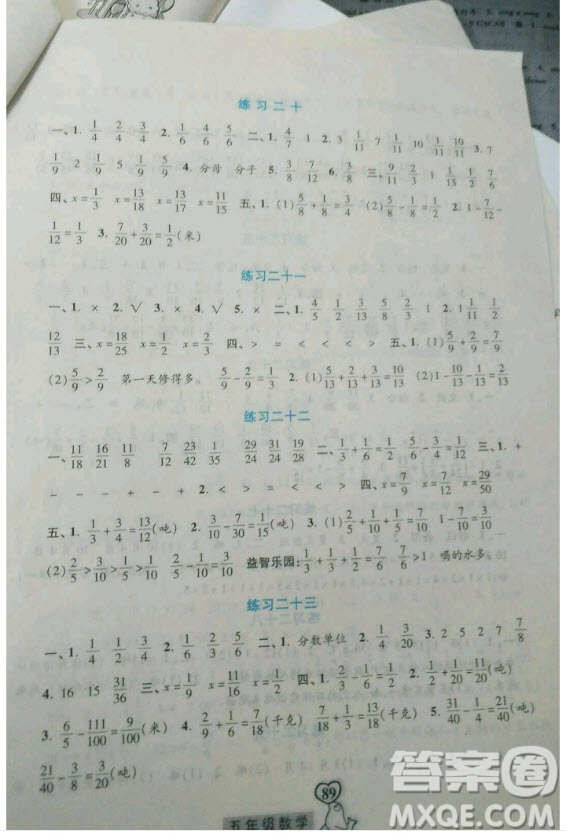 练习二十
一、1. 1/4 2/4 3/4 2. 1/6 4/6 5/6 二、1. 4/7 1 2. 3 11 7 1/11 10/11 3. 7
1/9 2 1/9 5 1/9 5/9 4. 分母 分子 5. 5/8 7/12 6. 3/8 三、9/11 2/3 1 1/13 1/2 7/6
四、x=1/3 x=13/18 x=17/13 x=11/15 五、1. (1)5/8+1/8=3/4 (2)5/8-1/8=1/2 2. 1-7/12-
1/12=1/3 3. 7/20+3/20=1/2(米)
练习二十一
一、1. × 2. √ 3. × 4. √ 5. × 二、1. 4/5 1/2 3/5 1/3 5/7 2/3 2. 1 1/10 4/9 5/11
12/13 三、x=18/25 x=1/2 x=2/3 四、> = < < > 五、1. (1)5/9+2/9=7/9
(2)5/9>2/9 第一天修得多。 5/9-2/9=1/3 2. (1)5/13+2/13+3/13=10/13 (2)1-10/13-1/13=2/13
练习二十二
一、11/18 16/21 11/8 7/12 23/42 1/35 29/24 31/19 29/28 二、1/3+1/6=1/2 1/3-1/4=1/12 三、1. +
- - - + - + 2. < = > < < > 四、x=7/9 x=7/12 x=29/50
五、1. 1/3+3/4=13/12(吨) 2. 3/10-7/30=1/15(吨) 3. (1)2/5+1/10+1/5=7/10 1-7/10=3/10
(2)2/5>3/10>1/5>1/10 2/5-1/10=3/10 益智乐园:1/3+1/3+1/2=7/6 7/6>1 喝的水多。
练习二十三
一、1. 1/4 1/2 3/4 2. 1/3 2/3 5/6 二、1. 分数单位 2. 1/4 3/20 3. 2 5 2 7 7/8
4. 16 15 31/36 三、x=1/9 x=11/16 x=1/2 四、1. 1/3-1/12=1/4 2. 1/2+1/20=11/20(吨)
3. 6/5-111/100=9/100(米) 4. 2/9+1/6=7/18(千克) 7/18+1/3=13/18(千克) 5. 21/40-1/4=11/40(吨)
21/40-3/8=3/20(吨)
89
五年级数学
答案圈
MXQE.COM